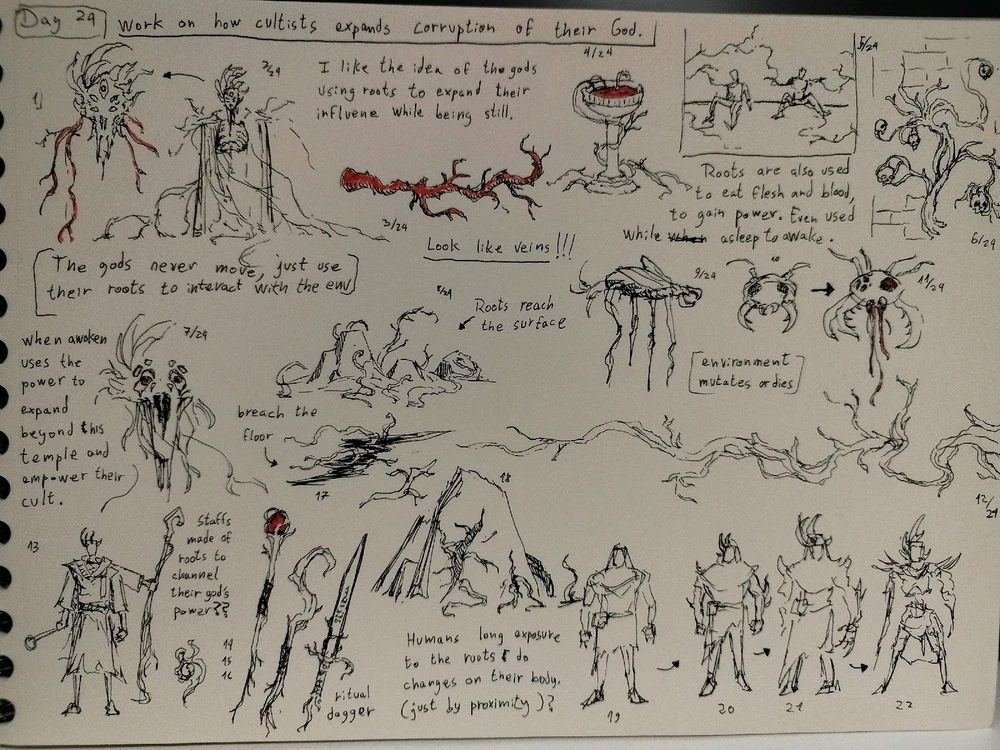 Day 24
Work on how cultists expands corruption of their God.
1)
2/24
I like the idea of the gods
using roots to expand their
influene while being still.
3/24
Look like veins!!!
4/24
5/24
Roots are also used
to eat flesh and blood,
to gain power. Even used
while when asleep to awake.
6/24
The gods never move, just use
their roots to interact with the env
7/24
when awoken
uses the
power to
expand
beyond this
temple and
empower their
cult.
8/24
Roots reach
the surface
9/24
10
11/24
environment
mutates or dies
breach the
floor
17
18
12/24
13
Staffs
made of
roots to
channel
their god's
power??
14
15
16
ritual
dagger
Humans long exposure
to the roots do
changes on their body.
(just by proximity)?
19
20
21
22